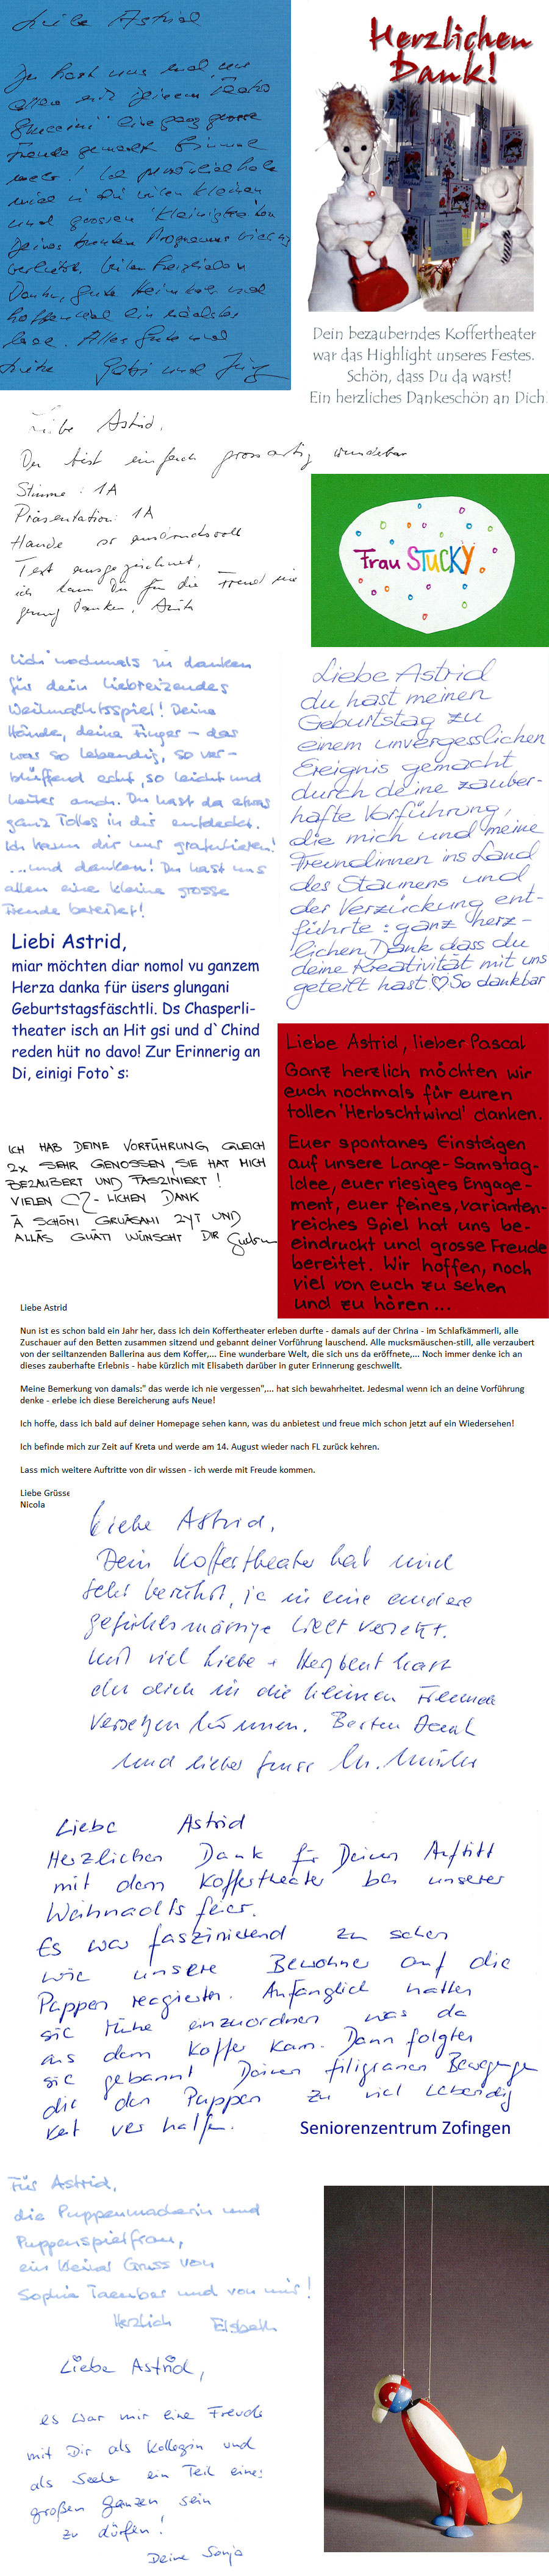 Liebe Astrid
Du hast uns und uns
allen mit Deinem Teatro
eine ganz grosse
Freude gemacht Einmal
mehr! Ich persönlich habe
mich in die vielen kleinen
und grossen Kleinigkeiten
Deines bunten Programms
verliebt, vielen herzlichen
Dank, gute Heimkehr und
hoffentlich ein nächstes
Alles Gute und
Liebe und Jürg
Herzlichen
Dank!
Dein bezauberndes Koffertheater
war das Highlight unseres Festes.
Schön, dass Du da warst!
Ein herzliches Dankeschön an Dich!
Liebe Astrid,
Du bist einfach grossartig wunderbar
Stimme : 1A
Präsentation: 1A
Hände so ausdrucksvoll
Text ausgezeichnet,
ich kann Dir für die Freud nie
genug danken,
Frau STUCKY
dich nochmals zu danken
für dein liebreizendes
Weihnachtsspiel! Deine
Hände, deine Finger – das
war so lebendig, so ver-
blüffend echt, so leicht und
heiter auch. Du hast da etwas
ganz Tolles in dir entdeckt.
Ich kann dir nur gratulieren!
...und danken! Du hast uns
allen eine kleine grosse
Freude bereitet!
Liebe Astrid
du hast meinen
Geburtstag zu
einem unvergesslichen
Ereignis gemacht
durch deine zauber-
hafte Vorführung,
die mich und meine
Freundinnen ins Land
des Staunens und
der Verzückung ent-
führte : ganz herz-
lichen Dank dass du
deine Kreativität mit uns
geteilt hast ♡ So dankbar
Liebi Astrid,
miar möchten diar nomol vu ganzem
Herza danka für üsers glungani
Geburtstagsfäschtli. Ds Chasperli-
theater isch an Hit gsi und d`Chind
reden hüt no davo! Zur Erinnerig an
Di, einigi Foto`s:
ICH HAB DEINE VORFÜHRUNG GLEICH
2x SEHR GENOSSEN, SIE HAT MICH
BEZAUBERT UND FASZINIERT !
VIELEN ♡-LICHEN DANK
Ä SCHÖNI GRUÄSAMI ZYT UND
ALLÄS GUÄTI WÜNSCHT DIR
Liebe Astrid, lieber Pascal
Ganz herzlich möchten wir
euch nochmals für euren
tollen 'Herbschtwind' danken.
Euer spontanes Einsteigen
auf unsere Lange-Samstag-
Idee, euer riesiges Engage-
ment, euer feines, varianten-
reiches Spiel hat uns be-
eindruckt und grosse Freude
bereitet. Wir hoffen, noch
viel von euch zu sehen
und zu hören ...
Liebe Astrid
Nun ist es schon bald ein Jahr her, dass ich dein Koffertheater erleben durfte - damals auf der Chrina - im Schlafkämmerli, alle
Zuschauer auf den Betten zusammen sitzend und gebannt deiner Vorführung lauschend. Alle mucksmäuschen-still, alle verzaubert
von der seiltanzenden Ballerina aus dem Koffer,... Eine wunderbare Welt, die sich uns da eröffnete,... Noch immer denke ich an
dieses zauberhafte Erlebnis - habe kürzlich mit Elisabeth darüber in guter Erinnerung geschwellt.
Meine Bemerkung von damals:" das werde ich nie vergessen",... hat sich bewahrheitet. Jedesmal wenn ich an deine Vorführung
denke - erlebe ich diese Bereicherung aufs Neue!
Ich hoffe, dass ich bald auf deiner Homepage sehen kann, was du anbietest und freue mich schon jetzt auf ein Wiedersehen!
Ich befinde mich zur Zeit auf Kreta und werde am 14. August wieder nach FL zurück kehren.
Lass mich weitere Auftritte von dir wissen - ich werde mit Freude kommen.
Liebe Grüsse
Nicola
Liebe Astrid,
Dein Koffertheater hat mich
sehr berührt, ja in eine andere
gefühlsmässige Welt versetzt.
Mit viel Liebe + Herzblut hast
du dich in die kleinen Freunde
versetzen können. Besten Dank
und lieber Gruss
Liebe Astrid
Herzlichen Dank für Deinen Auftritt
mit dem Koffertheater bei unserer
Weihnachtsfeier.
Es war faszinierend zu sehen
wie unsere Bewohner auf die
Puppen reagierten. Anfänglich hatten
sie Mühe einzuordnen was da
aus dem Koffer kam. Dann folgten
sie gebannt Deinen filigranen Bewegungen
die den Puppen zu viel Lebendig
keit verhalfen.
Seniorenzentrum Zofingen
Für Astrid,
die Puppenmacherin und
Puppenspielfrau,
ein kleiner Gruss von
Sophie Taeuber und von mir!
Herzlich Elsbeth
Liebe Astrid,
es war mir eine Freude
mit Dir als Kollegin und
als Seele ein Teil eines
großen ganzen sein
zu dürfen!
Deine Sonja